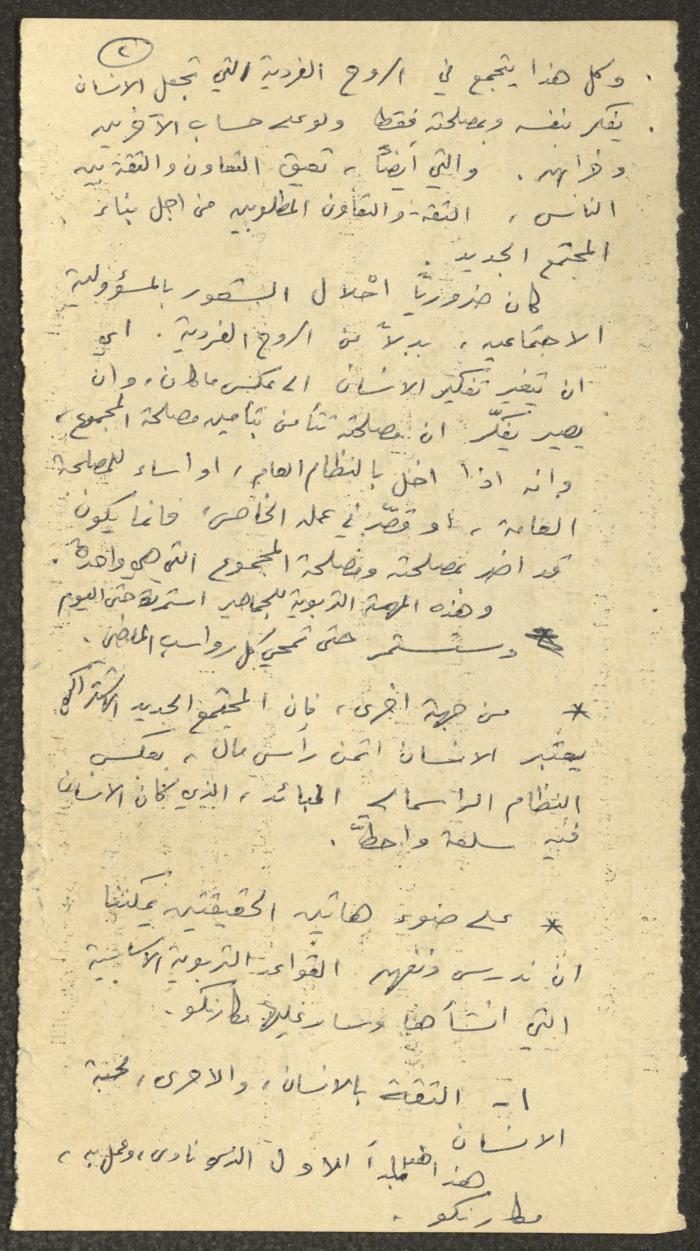 ٢
وكل هذا يتجمع في الروح الفردية التي تجعل الانسان
يفكر بنفسه وبمصلحته فقط ولو على حساب الآخرين
. والتي أيضاً، تعيق التعاون والثقة بين
الناس، الثقة والتعاون المطلوبين من اجل بناء
المجتمع الجديد.
كان ضرورياً احلال الشعور بالمسؤولية
الاجتماعية، بدلاً من الروح الفردية. اي
ان يتغير تفكير الانسان الى عكس ما كان، وان
يصير يفكّر ان مصلحته تتأمن بتأمين مصلحة المجموع،
وانه اذا اخل بالنظام العام، او اساء للمصلحة
العامة، او قصّر في عمله الخاص، فانما يكون
قد اضر بمصلحته ومصلحة المجموع التي هي واحدة.
وهذه المهمة التربوية للجماهير استمرت حتى اليوم
وستستمر حتى تمحي كل رواسب الماضي.
* من جهة اخرى، فان المجتمع الجديد الاشتراكي
يعتبر الانسان اثمن رأس مال، بعكس
النظام الراسمالي البائد، الذي كان الانسان
فيه سلعة واحطّ.
* على ضوء هاتين الحقيقتين يمكننا
ان ندرس ونفهم القواعد التربوية الاساسية
التي انشأها وسار عليها مكارنكو.
١- الثقة بالانسان، والاحرى، محبة
الانسان
هذا المبدأ الاول الذي نادى، وعمل به،
مكارنكو.